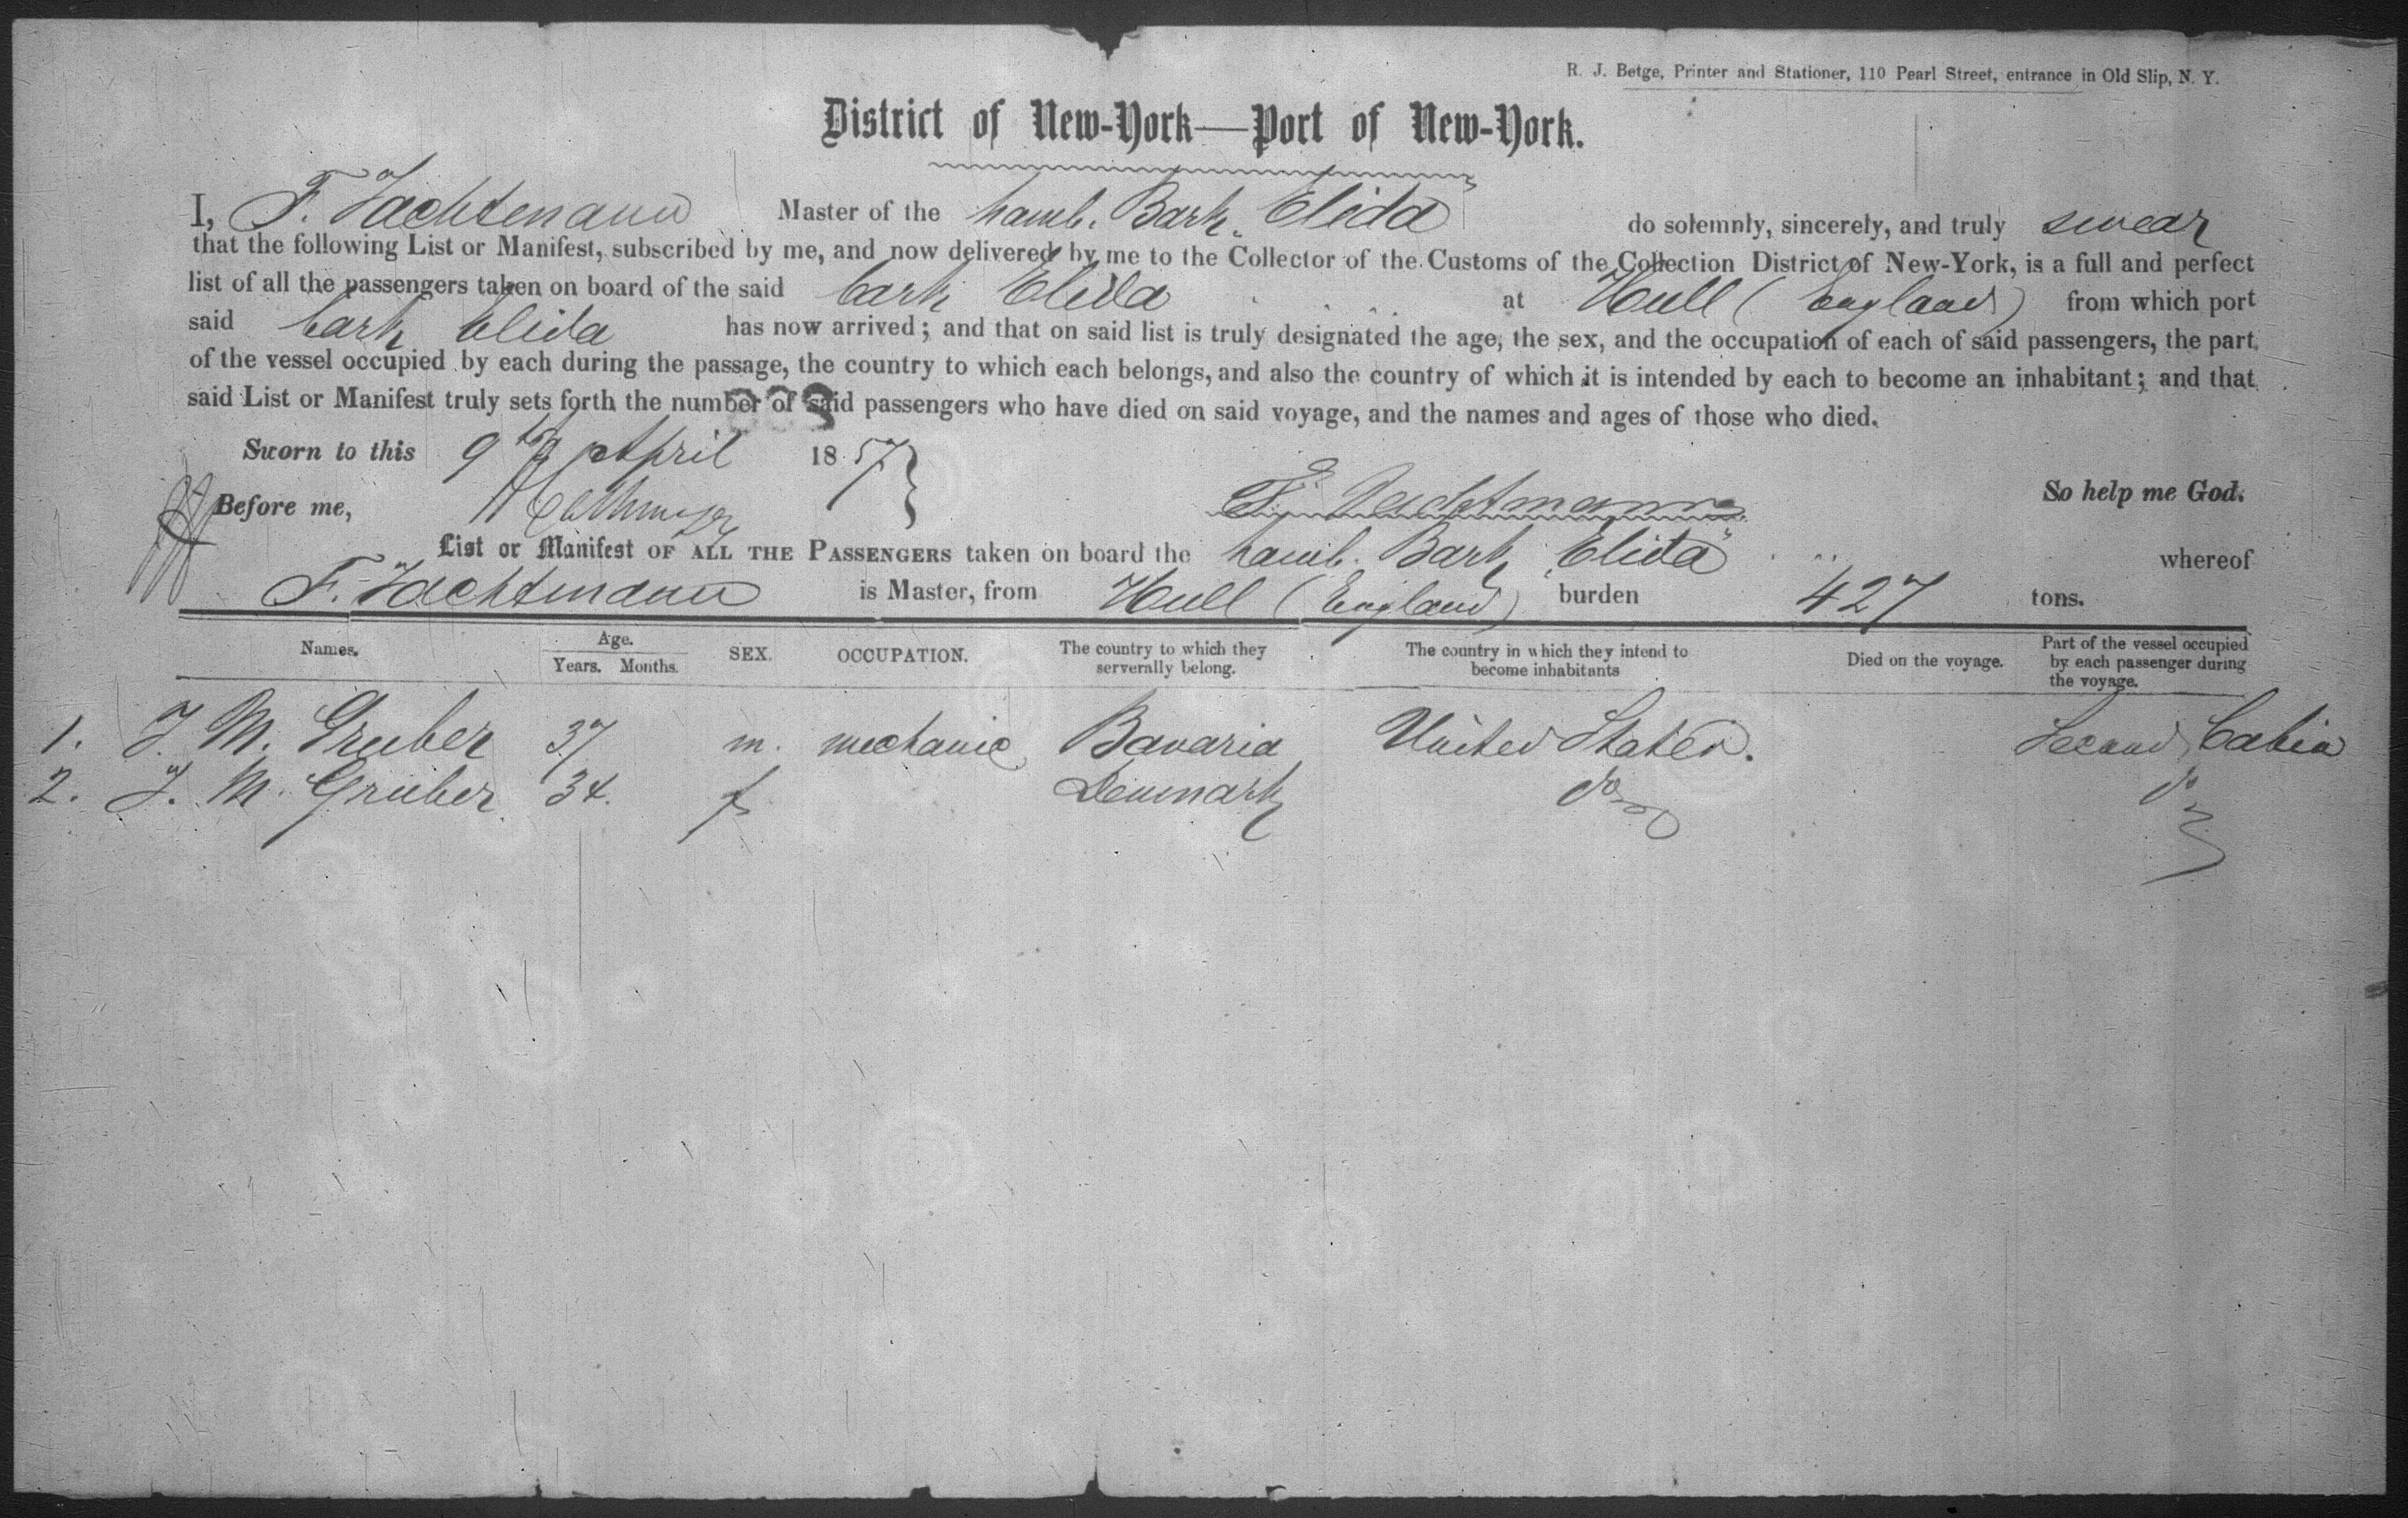 R. J. Betge, Printer and Stationer, 110 Pearl Street, entrance in Old Slip, N. Y.
District of New-York—Port of New-York.
I, F. Vachtmann Master of the hamb. Bark "Elida" do solemnly, sincerely, and truly swear
that the following List or Manifest, subscribed by me, and now delivered by me to the Collector of the Customs of the Collection District of New-York, is a full and perfect
list of all the passengers taken on board of the said bark Elida at Hull (England) from which port
said bark Elida has now arrived; and that on said list is truly designated the age, the sex, and the occupation of each of said passengers, the part
of the vessel occupied by each during the passage, the country to which each belongs, and also the country of which it is intended by each to become an inhabitant; and that
said List or Manifest truly sets forth the number of said passengers who have died on said voyage, and the names and ages of those who died.
Sworn to this 9th April 1857
So help me God.
Before me, F. Vachtmann
List or Manifest OF ALL THE PASSENGERS taken on board the hamb. Bark "Elida" whereof
F. Vachtmann is Master, from Hull (England) burden 427 tons.
Names. Age. Years. Months. SEX. OCCUPATION. The country to which they serverally belong. The country in which they intend to become inhabitants Died on the voyage. Part of the vessel occupied by each passenger during the voyage.
1. J. M. Gruber 37 m. mechanic Bavaria United States. Second Cabin
2. J. M. Gruber 34. f Denmark do do